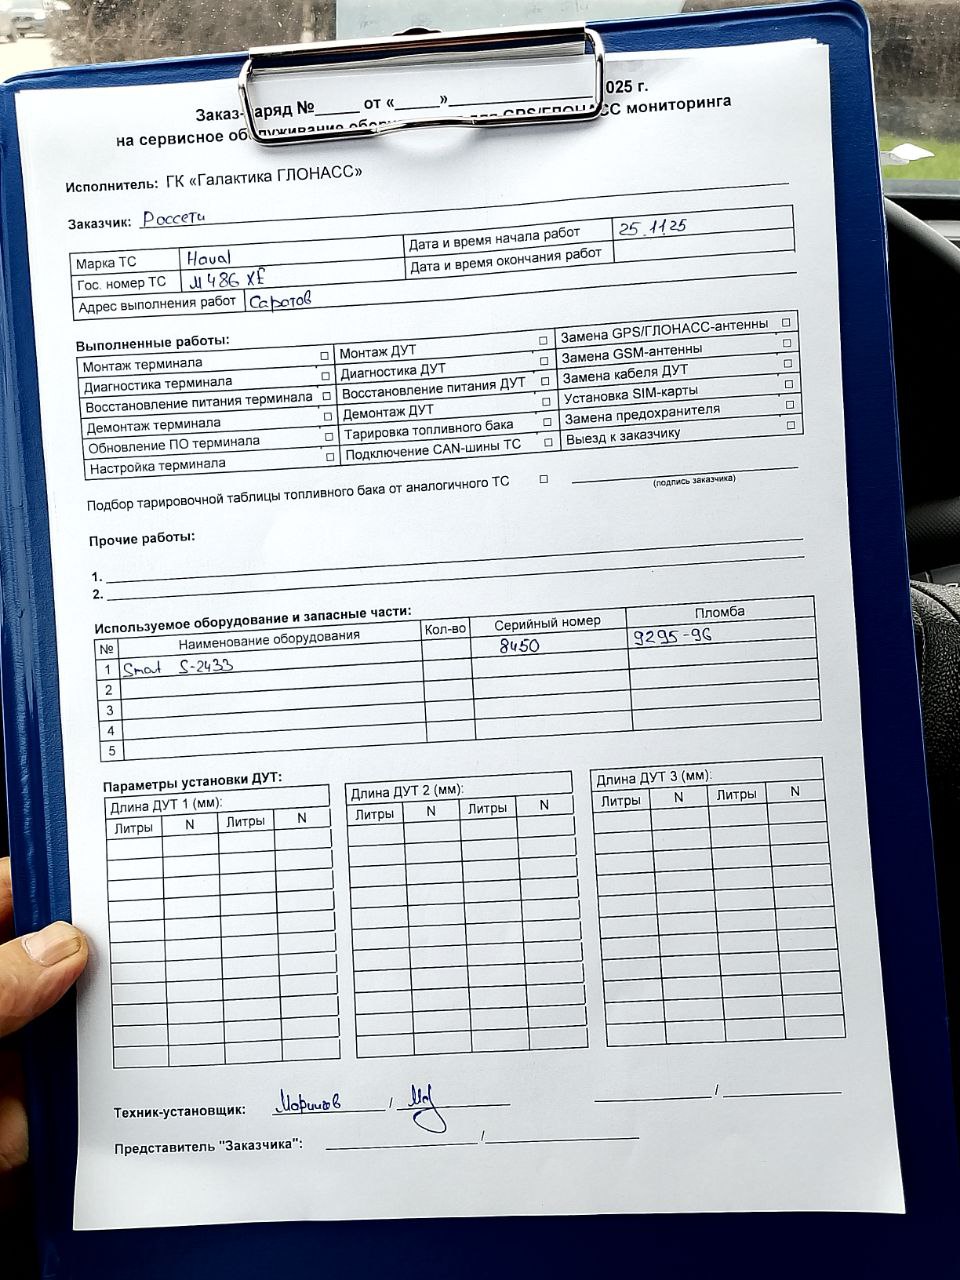 Заказ-наряд №_____ от «_____»________________2025 г.
на сервисное обслуживание оборудования для GPS/ГЛОНАСС мониторинга
Исполнитель: ГК «Галактика ГЛОНАСС»
Заказчик: Россети
Марка ТС Haval Дата и время начала работ 25.11.25
Гос. номер ТС М 486 ХЕ Дата и время окончания работ
Адрес выполнения работ Саратов
Выполненные работы:
Монтаж терминала □ Монтаж ДУТ □ Замена GPS/ГЛОНАСС-антенны □
Диагностика терминала □ Диагностика ДУТ □ Замена GSM-антенны □
Восстановление питания терминала □ Восстановление питания ДУТ □ Замена кабеля ДУТ □
Демонтаж терминала □ Демонтаж ДУТ □ Установка SIM-карты □
Обновление ПО терминала □ Тарировка топливного бака □ Замена предохранителя □
Настройка терминала □ Подключение CAN-шины ТС □ Выезд к заказчику □
Подбор тарировочной таблицы топливного бака от аналогичного ТС □
(подпись заказчика)
Прочие работы:
1.
2.
Используемое оборудование и запасные части:
№ Наименование оборудования Кол-во Серийный номер Пломба
1 Smat S-2433 8450 9295-96
2
3
4
5
Параметры установки ДУТ:
Длина ДУТ 1 (мм): Длина ДУТ 2 (мм): Длина ДУТ 3 (мм):
Литры N Литры N Литры N Литры N Литры N Литры N
Техник-установщик: / /
Представитель "Заказчика": /